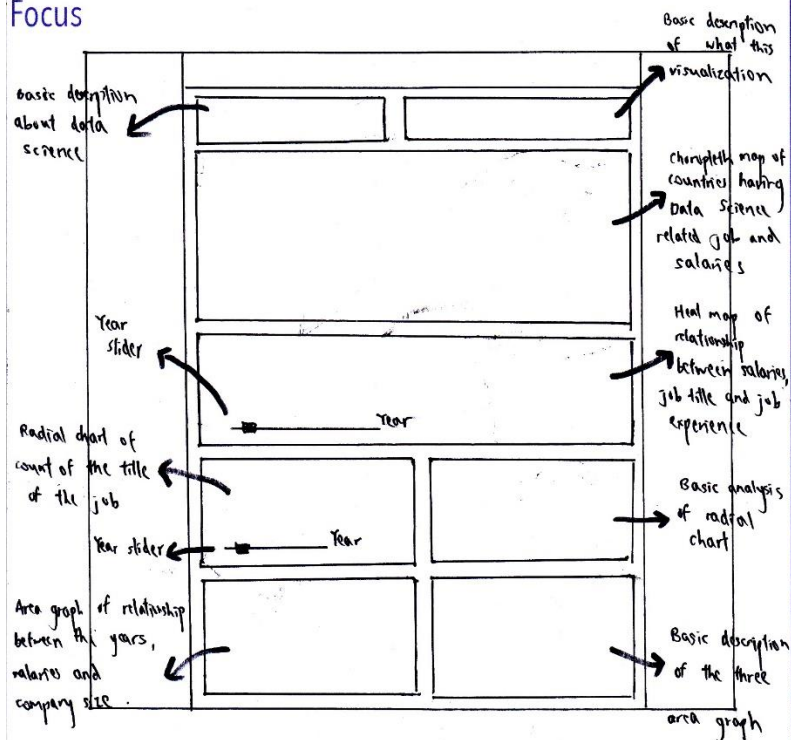 Focus
Basic description
of what this
visualization
Basic description
about data
science
Choropleth map of
countries having
Data Science
related job and
salaries
Year
slider
Heat map of
relationship
between salaries,
job title and job
experience
Year
Radial chart of
count of the title
of the job
Basic analysis
of radial
chart
Year slider
Year
Area graph of relationship
between the years,
salaries and
company size.
Basic description
of the three
area graph